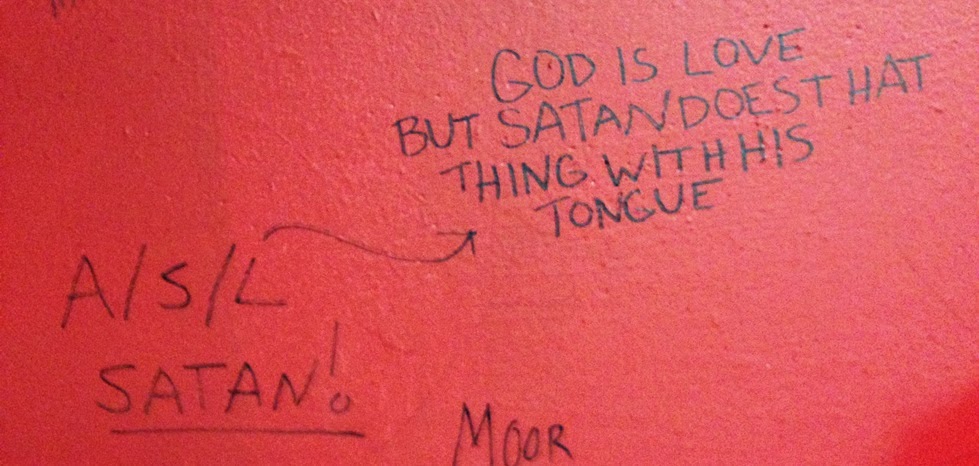 GOD IS LOVE
BUT SATAN DOES THAT
THING WITH HIS
TONGUE
A/S/L
SATAN!
MOOR